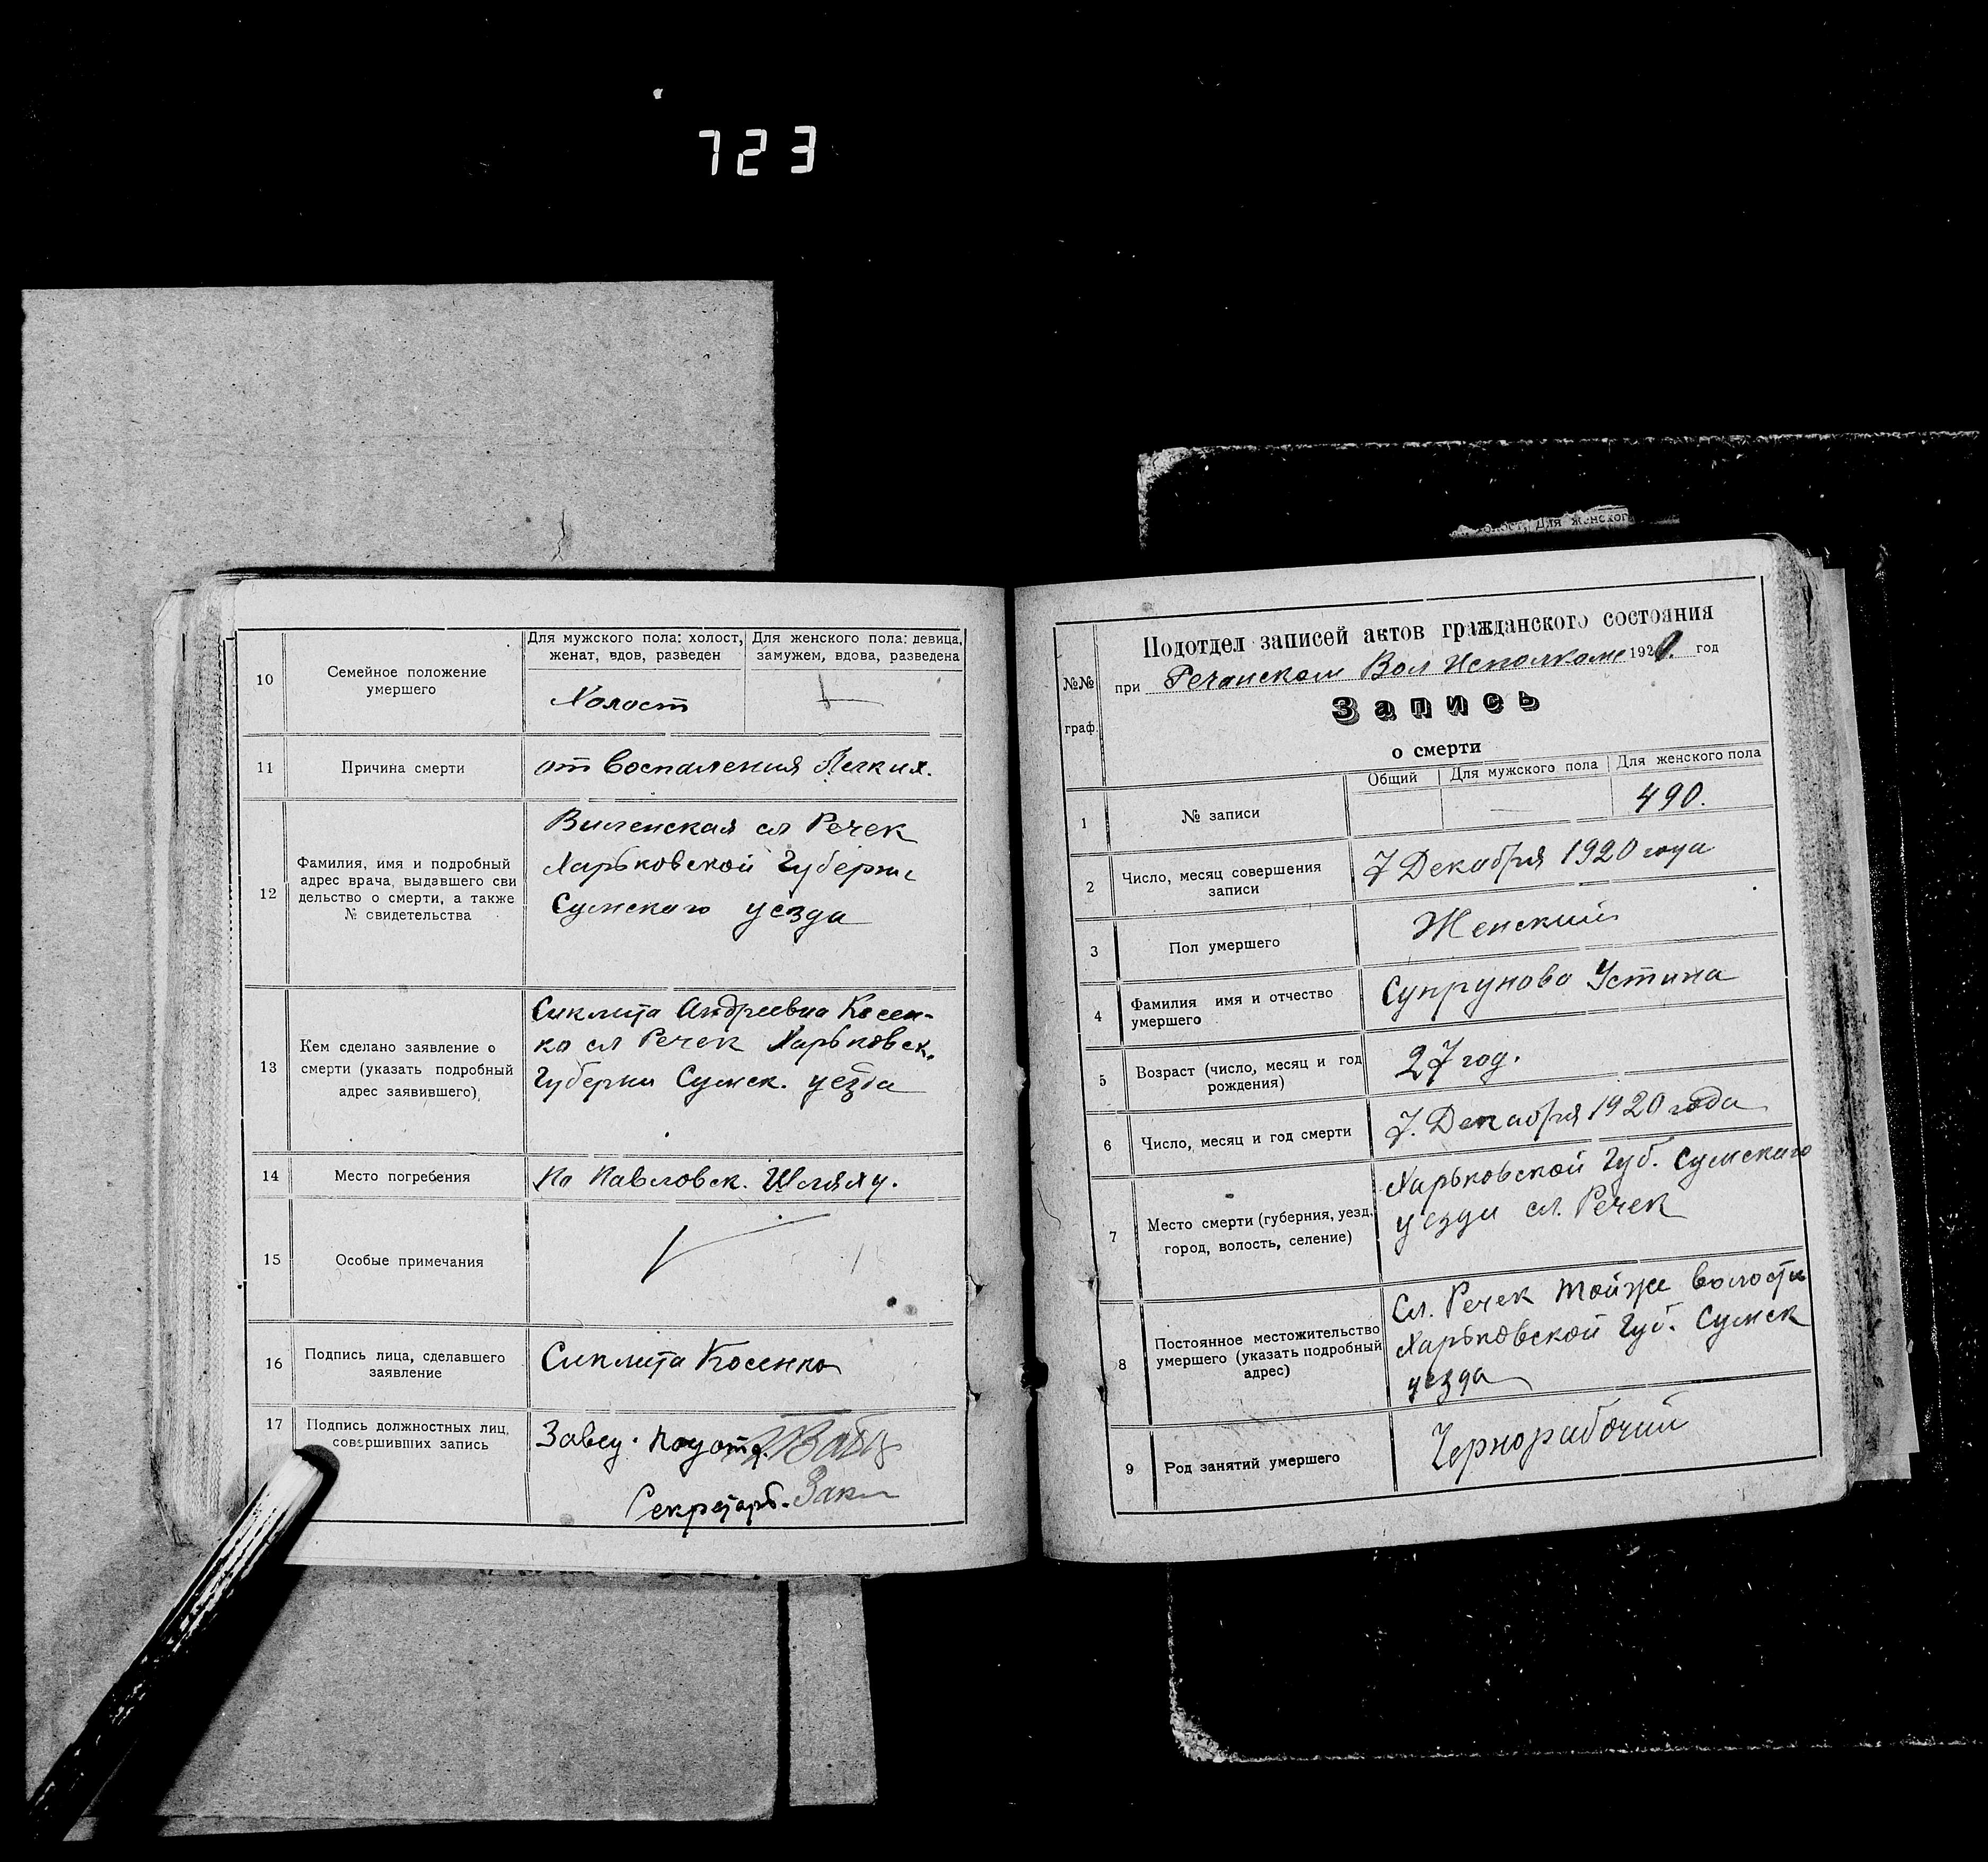 723
10
Семейное положение
умершего
Для мужского пола: холост,
женат, вдов, разведен
Для женского пола: девица,
замужем, вдова, разведена
Холост
11
Причина смерти
от воспаления Легких.
12
Фамилия, имя и подробный
адрес врача, выдавшего сви
дельство о смерти, а также
№ свидетельства
Виленская сл Речек
Харьковской Губерни
Сумскаго уезда
13
Кем сделано заявление о
смерти (указать подробный
адрес заявившего)
Сиклита Андреевна Косен-
ко сл Речек Харьковск.
Губерни Сумск. уезда
14
Место погребения
По Павловск. Шляху.
15
Особые примечания
16
Подпись лица, сделавшего
заявление
Сиклита Косенко
17
Подпись должностных лиц,
совершивших запись
Завед. подотд.
Секретарь.
Для женског
№№
граф.
Подотдел записей актов гражданского состояния
при Речанском Вол Исполкоме 1920. год
Запись
о смерти
Общий
Для мужского пола
Для женского пола
1
№ записи
490.
2
Число, месяц совершения
записи
7 Декабря 1920 года
3
Пол умершего
Женский
4
Фамилия имя и отчество
умершего
Супруново Устина
5
Возраст (число, месяц и год
рождения)
27 год.
6
Число, месяц и год смерти
7. Декабря 1920 года
7
Место смерти (губерния, уезд,
город, волость, селение)
Харьковской Губ. Сумскаго
уезда сл. Речек
8
Постоянное местожительство
умершего (указать подробный
адрес)
Сл. Речек тойже волости
Харьковской Губ. Сумск
уезда
9
Род занятий умершего
Чернорабочий